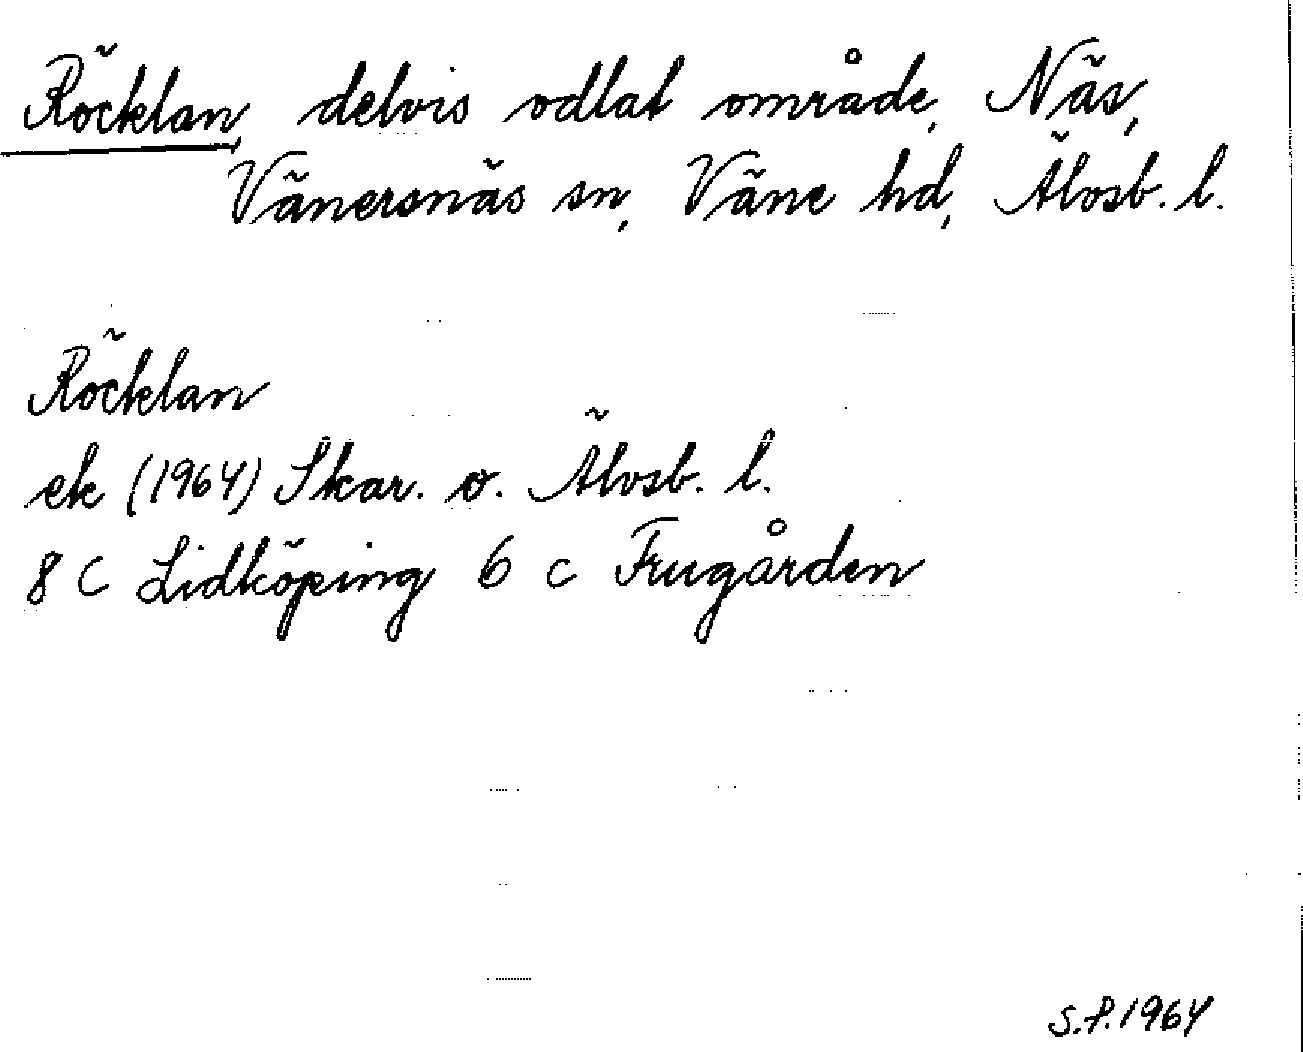 Röcklan, delvis odlat område, Näs,
Vänersnäs sn, Väne hd, Älvsb. l.
Röcklan
ek (1964) Skar. o. Älvsb. l.
8 C Lidköping 6 c Frugården
S.P. 1964